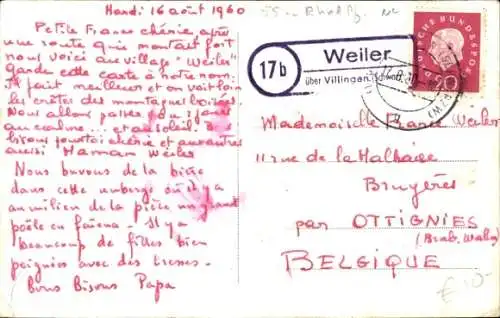 Mardi 16 août 1960
Petite France chérie, après
une route qui montait fort
nous voici au village "Weiler"
Garde cette carte à notre nom.
Il fait meilleur et on voit loin
les crêtes des montagnes boisées.
Nous allons passer jours
au calme... et au soleil
bisous pour toi chérie et
aussi Maman Weiler
Nous buvons de la bière
dans cette auberge où il y a
au milieu de la pièce un grand
poêle en faïence - Il y a
beaucoup de filles bien
peignées avec des tresses.
Bons Bisous Papa
17b
Weiler
über Villingen (Schwarzw)
DEUTSCHE BUNDESPOST
20
Mademoiselle France Weiler
11 rue de la Malhaise
Bruyères
par OTTIGNIES
(Brab. Wallon)
BELGIQUE
€ 10-